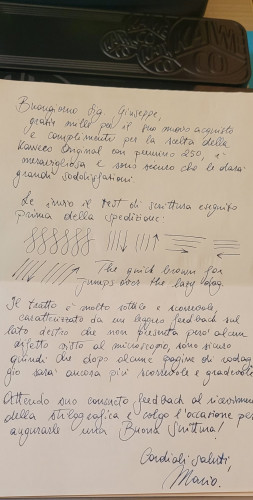 Buongiorno Sig. Giuseppe,
grazie mille per il suo nuovo acquisto
e complimenti per la scelta della
Kaweco Original con pennino 250, è
meravigliosa e sono sicuro che le darà
grandi soddisfazioni.
Le invio il test di scrittura eseguito
prima della spedizione:
The quick brown fox
jumps over the lazy dog
Il tratto è molto sottile e scorrevole,
caratterizzato da un leggero feedback sul
lato destro che non presenta però alcun
difetto visto al microscopio, sono sicuro
quindi che dopo alcune pagine di rodag
gio sarà ancora più scorrevole e gradevole.
Attendo suo consueto feedback al ricevimento
della stilografica e colgo l'occasione per
augurarle una Buona Scrittura!
Cordiali saluti,
Mario.